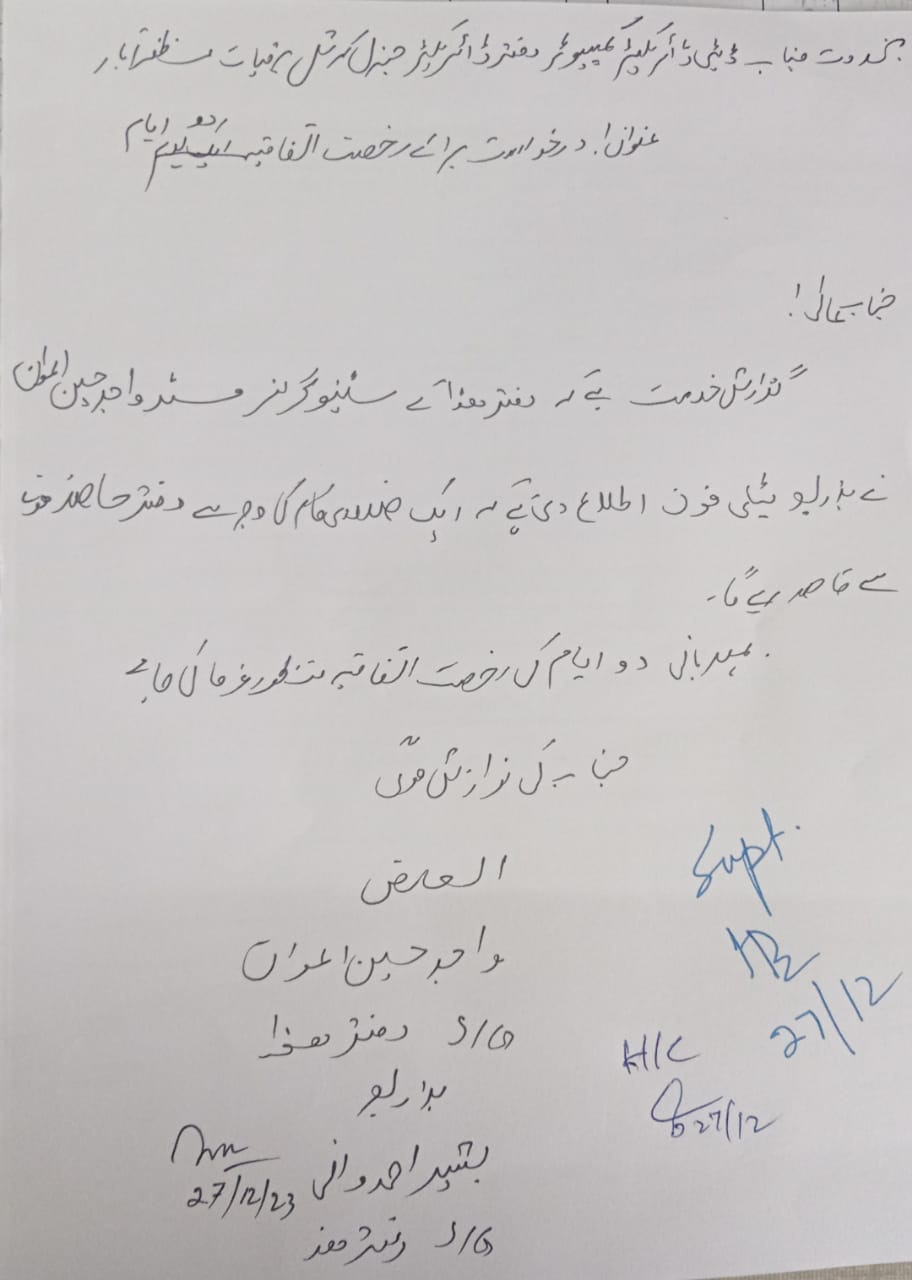 بخدمت جناب ڈپٹی ڈائریکٹر کمپیوٹر دفتر ڈائریکٹر جنرل کمرشل برقیات مظفرآباد
عنوان! درخواست برائے رخصت اتفاقیہ دو ایام
جناب عالی!
گذارش خدمت ہے کہ دفتر ھذا کے سٹینو گرافر مسٹر واجد حسین اعوان
نے بذریعہ ٹیلی فون اطلاع دی ہے کہ ایک ضروری کام کی وجہ سے دفتر حاضر ہونے
سے قاصر رہے گا۔
بمہربانی دو ایام کی رخصت اتفاقیہ منظور فرمائی جائے
جناب کی نوازش ہوگی
العارض
واجد حسین اعوان
S/G دفتر ھذا
بذریعہ
بشیر احمد وانی
27/12/23
S/G دفتر ھذا
Supt.
27/12
H/C
27/12